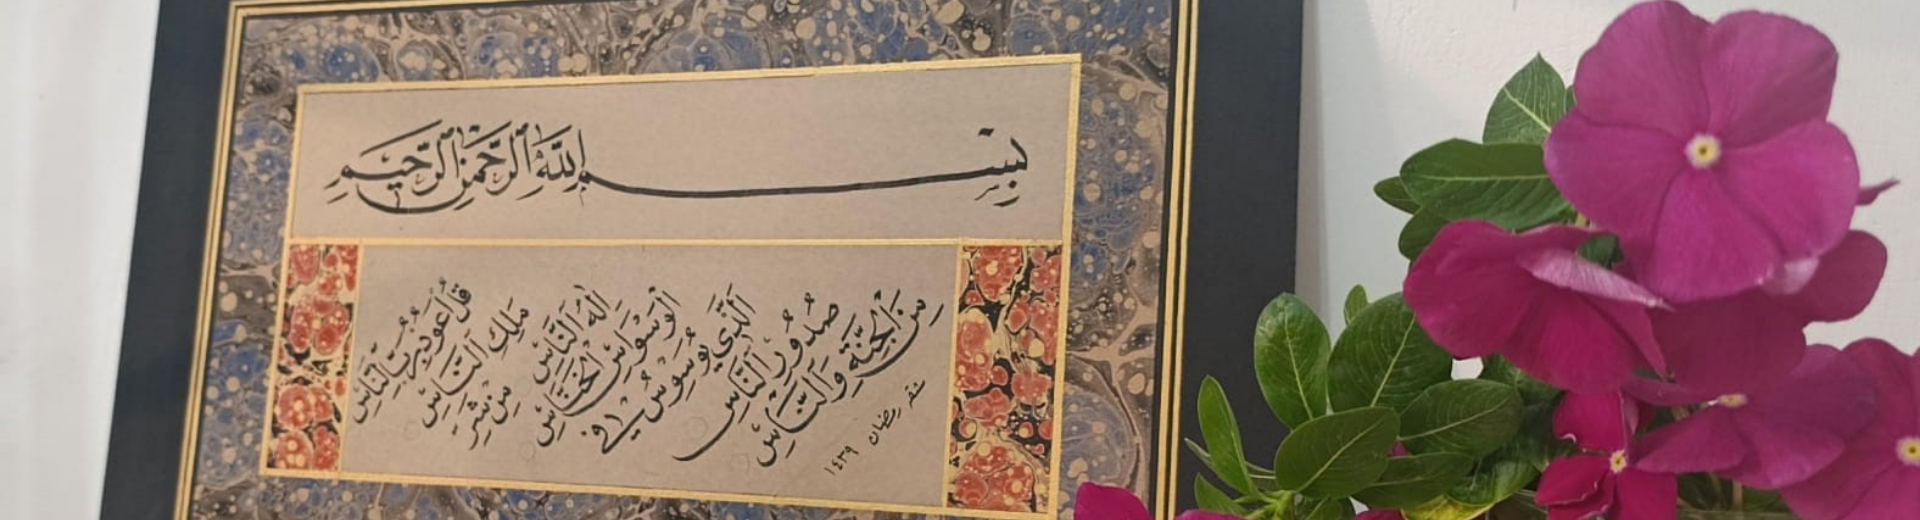 بِسْمِ ٱللَّهِ ٱلرَّحْمَٰنِ ٱلرَّحِيمِ
قُلْ أَعُوذُ بِرَبِّ ٱلنَّاسِ
مَلِكِ ٱلنَّاسِ
إِلَٰهِ ٱلنَّاسِ مِن شَرِّ
ٱلْوَسْوَاسِ ٱلْخَنَّاسِ
ٱلَّذِي يُوَسْوِسُ فِي
صُدُورِ ٱلنَّاسِ
مِنَ ٱلْجِنَّةِ وَٱلنَّاسِ
رمضان ١٤٣٩